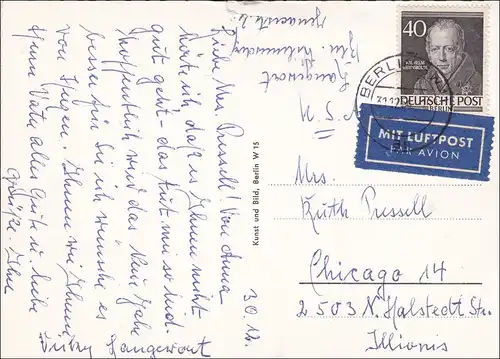 Liebe Mrs. Russell! Von Anna
hörte ich, daß es Ihnen nicht
gut geht - das tut mir so leid.
Hoffentlich wird das Neue Jahr
besser für Sie ich wünsche es
von Herzen. Ihnen und Ihrem
Herrn Vater alles Gute u. liebe
Grüße. Ihre
Langewort
30.12.
Kunst und Bild, Berlin W 15
Langewort
Bln.
U.S.A.
40
WILHELM V. HUMBOLDT
DEUTSCHE POST
BERLIN
BERLIN
MIT LUFTPOST
PAR AVION
Mrs.
Ruth Russell
Chicago 14
2503 N. Halstedt Str.
Illionis